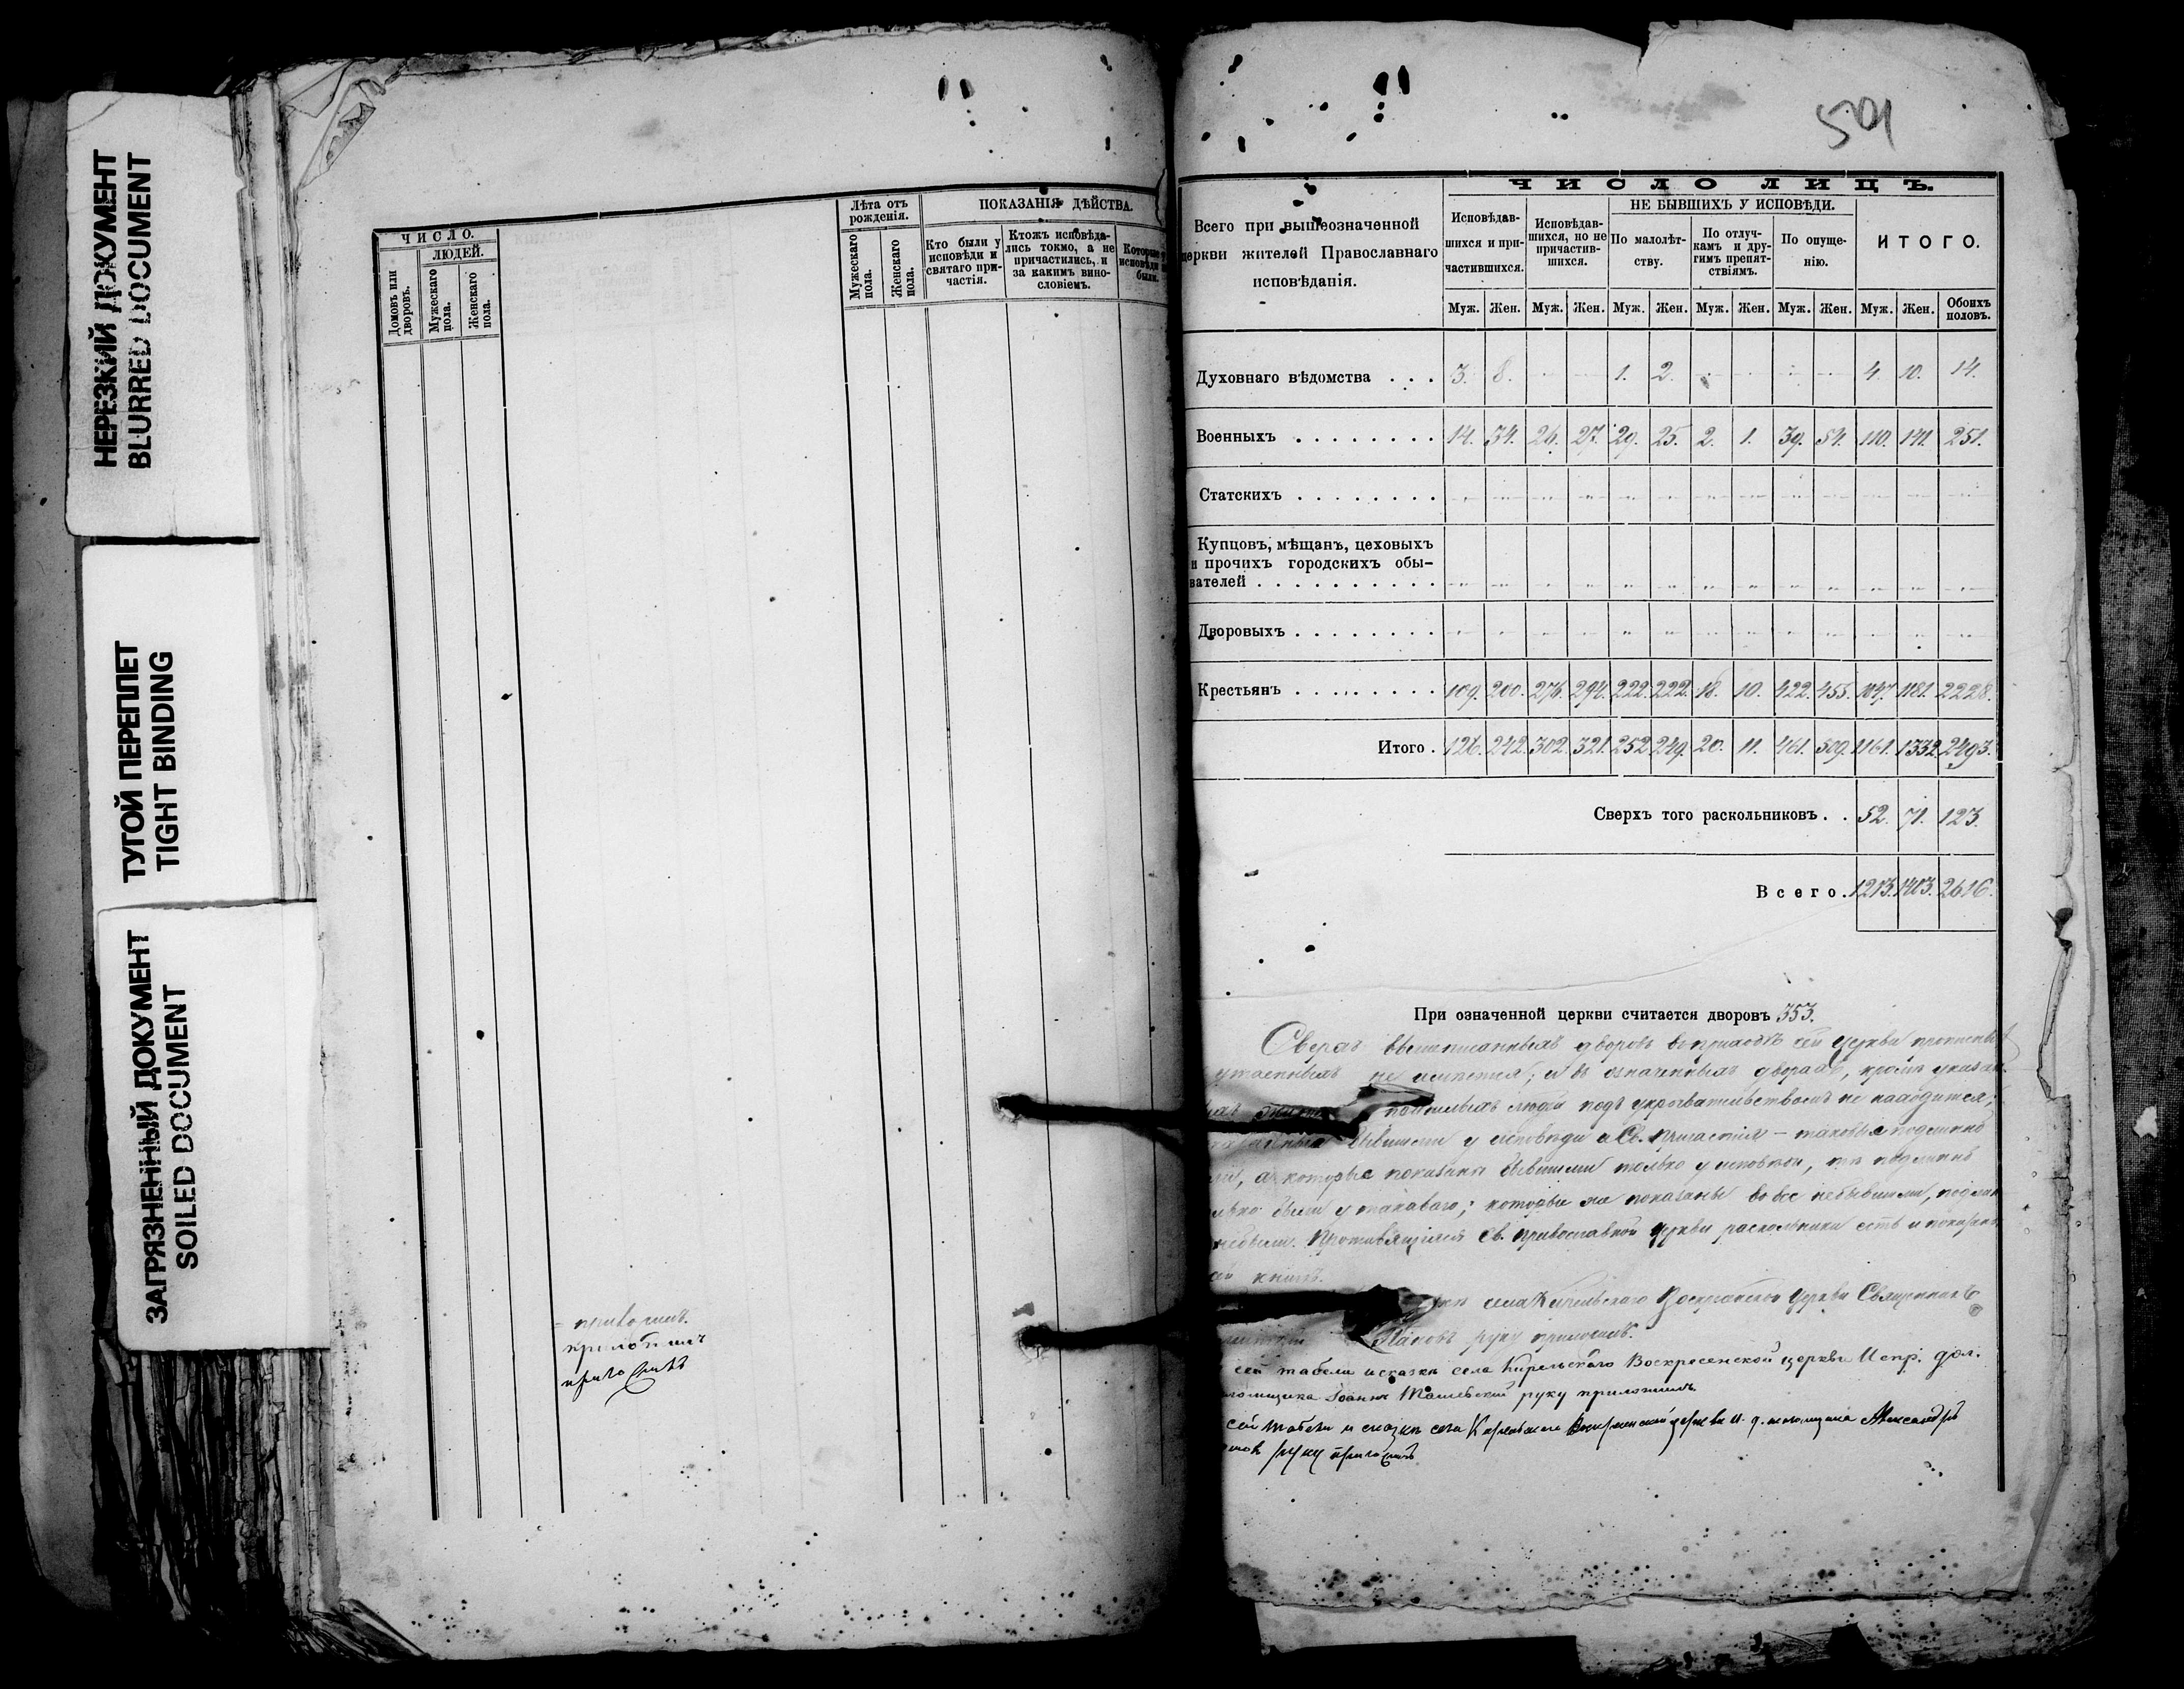 НЕРЕЗКИЙ ДОКУМЕНТ
BLURRED DOCUMENT
ТУГОЙ ПЕРЕПЛЕТ
TIGHT BINDING
ЗАГРЯЗНЕННЫЙ ДОКУМЕНТ
SOILED DOCUMENT
ЧИСЛО.
ЛЮДЕЙ.
Домовъ или дворовъ.
Мужескаго пола.
Женскаго пола.
Лѣта отъ рожденія.
Мужескаго пола.
Женскаго пола.
ПОКАЗАНІЯ ДѢЙСТВА.
Кто были у исповѣди и святаго причастія.
Ктожъ исповѣдались токмо, а не причастились, и за какимъ винословіемъ.
Которые исповѣди были.
приложилъ
501
ЧИСЛО ЛИЦЪ.
Всего при вышеозначенной
церкви жителей Православнаго
исповѣданія.
Исповѣдавшихся и причастившихся.
Исповѣдавшихся, но не причастившихся.
НЕ БЫВШИХЪ У ИСПОВѢДИ.
По малолѣтству.
По отлучкамъ и другимъ препятствіямъ.
По опущенію.
ИТОГО.
Муж. Жен. Муж. Жен. Муж. Жен. Муж. Жен. Муж. Жен. Муж. Жен. Обоихъ половъ.
Духовнаго вѣдомства . . . 3. 8. 1. 2. 4. 10. 14.
Военныхъ . . . . . . . . 14. 34. 26. 27. 29. 25. 2. 1. 39. 54. 110. 141. 251.
Статскихъ . . . . . . . .
Купцовъ, мѣщанъ, цеховыхъ
и прочихъ городскихъ обы-
вателей . . . . . . . . . .
Дворовыхъ . . . . . . . .
Крестьянъ . . . . . . . . 109. 200. 276. 294. 222. 222. 18. 10. 422. 455. 1047. 1181. 2228.
Итого . 126. 242. 302. 321. 252. 249. 20. 11. 461. 509. 1161. 1332. 2493.
Сверхъ того раскольниковъ . . 52. 71. 123.
Всего. 1213. 1403. 2616.
При означенной церкви считается дворовъ 353.
Сверхъ вышеписанныхъ дворовъ въ приходѣ сей церкви
утаенныхъ не имѣется; и въ означенныхъ дворахъ, кромѣ
людей подъ укрывательствомъ не находится;
бывшими у исповѣди и Св. Причастія – таковые подлинно
а которые показаны бывшими только у исповѣди, тѣ подлинно
были у таковаго; которые же показаны вовсе небывшими,
небыли. Противящіяся Св. православной церкви раскольники есть и показаны
книгѣ.
села Кирельскаго Воскресенской церкви Священникъ
руку приложилъ.
сей табели и сказкѣ села Кирельскаго Воскресенской церкви Испр. дол.
Іоаннъ руку приложилъ
сей табели и сказкѣ села Кирельскаго Воскресенской церкви и. д. псаломщика Александръ
руку приложилъ